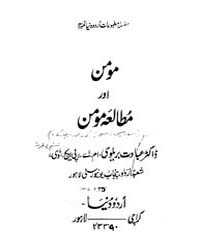 سلسلہ مطبوعات اردو دنیا نمبر
مومن
اور
مطالعۂ مومن
ڈاکٹر عبادت بریلوی، ایم اے، پی ایچ ڈی،
شعبۂ اردو پنجاب یونیورسٹی لاہور
اردو دنیا
کراچی — لاہور